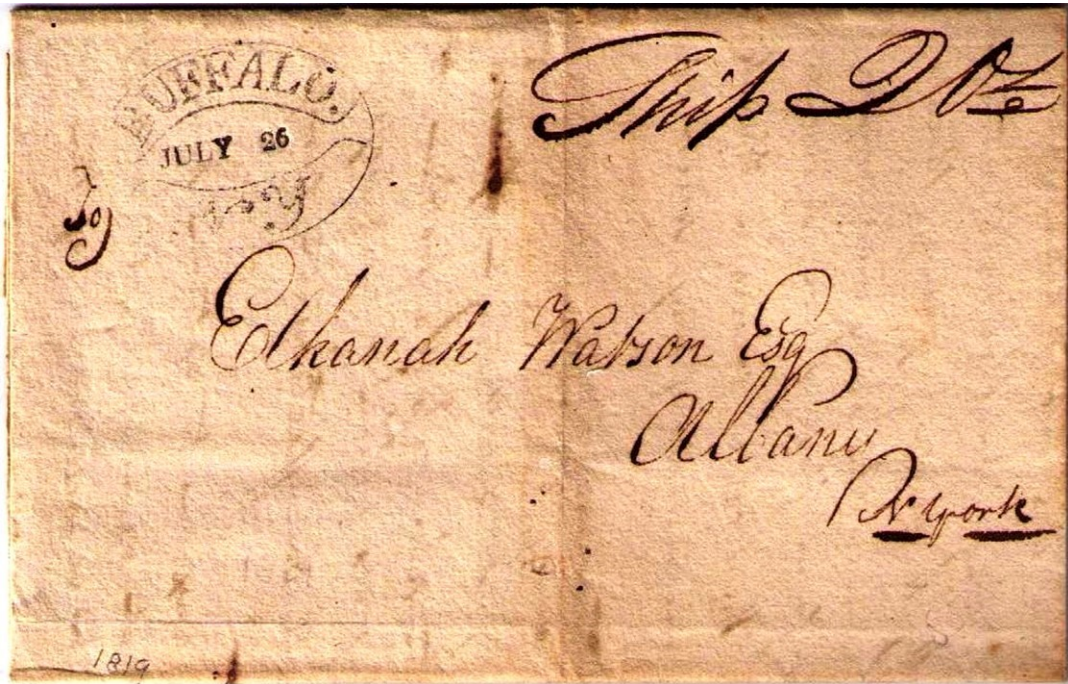 BUFFALO.
JULY 26
N.Y
Ship 20½
Elkanah Watson Esq
Albany
N York
1819